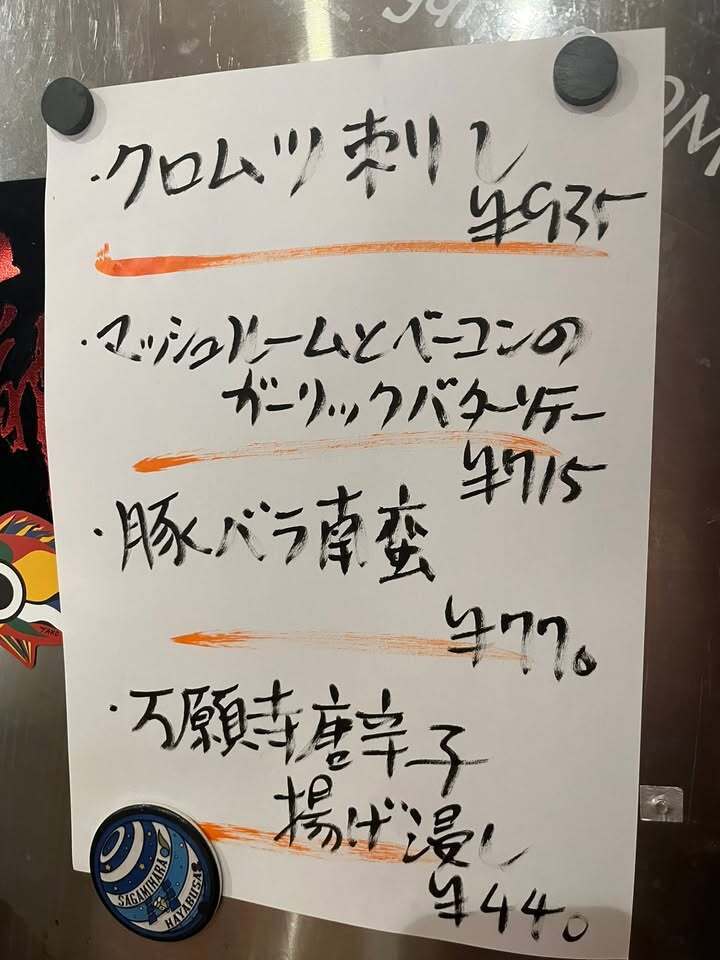 ・クロムツ刺し
¥935
・マッシュルームとベーコンの
ガーリックバターソテー
¥715
・豚バラ南蛮
¥770
・万願寺唐辛子
揚げ浸し
¥440
SAGAMIHARA
HAYABUSA